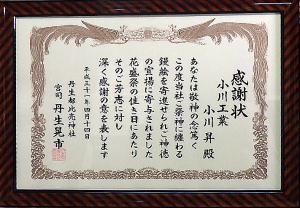 感謝状
小川工業
小川昇殿
あなたは敬神の念篤く
この度当社ご祭神に縁わる
鏝絵を寄進せられご神徳
の宣揚に寄与されました
花盛祭の佳き日にあたり
そのご芳志に対し
深く感謝の意を表します
平成三十一年四月十四日
丹生都比売神社
宮司 丹生晃市